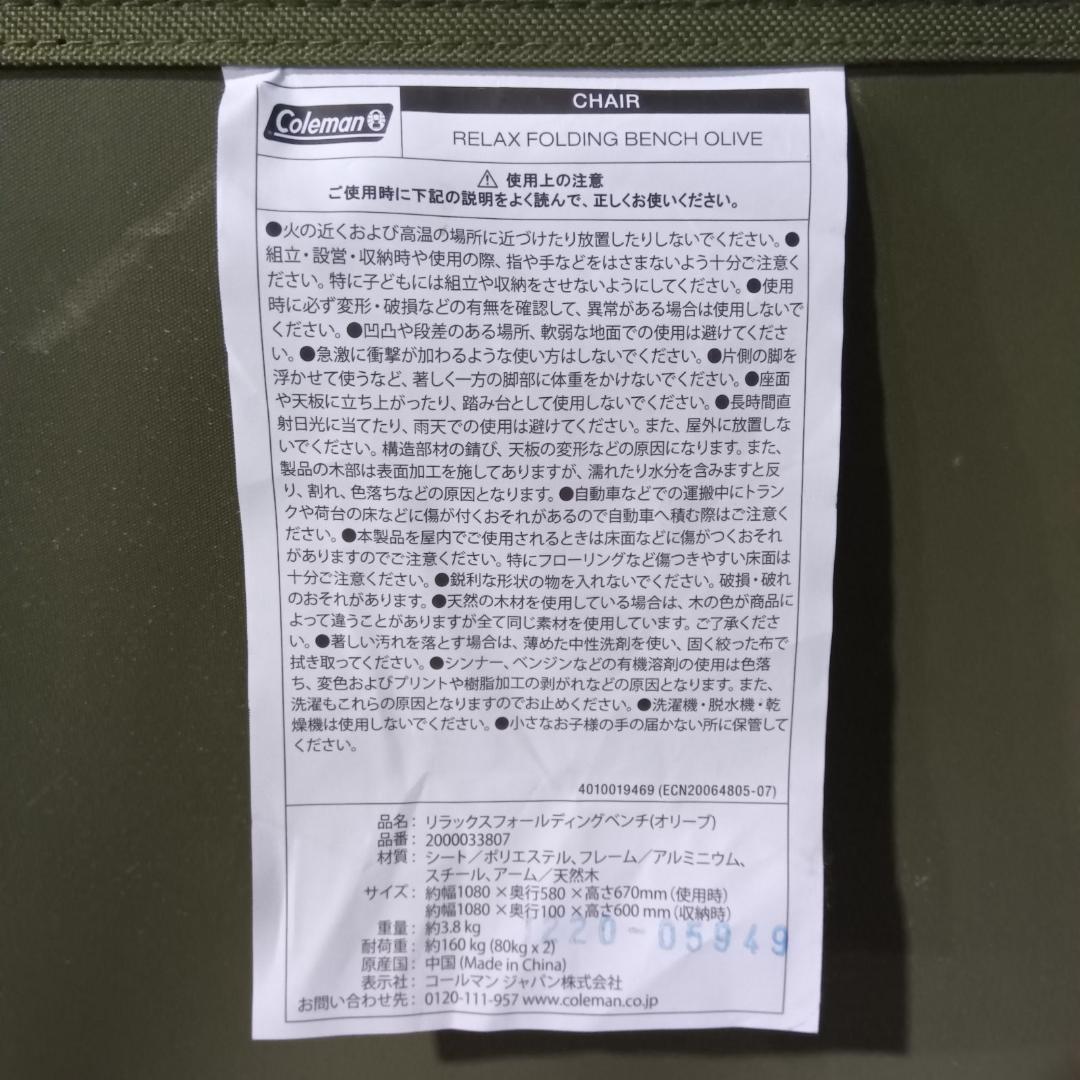 Coleman
CHAIR
RELAX FOLDING BENCH OLIVE
⚠ 使用上の注意
ご使用時に下記の説明をよく読んで、正しくお使いください。
●火の近くおよび高温の場所に近づけたり放置したりしないでください。●
組立・設営・収納時や使用の際、指や手などをはさまないよう十分ご注意く
ださい。特に子どもには組立や収納をさせないようにしてください。●使用
時に必ず変形・破損などの有無を確認して、異常がある場合は使用しないで
ください。●凹凸や段差のある場所、軟弱な地面での使用は避けてくださ
い。●急激に衝撃が加わるような使い方はしないでください。●片側の脚を
浮かせて使うなど、著しく一方の脚部に体重をかけないでください。●座面
や天板に立ち上がったり、踏み台として使用しないでください。●長時間直
射日光に当てたり、雨天での使用は避けてください。また、屋外に放置しな
いでください。構造部材の錆び、天板の変形などの原因になります。また、
製品の木部は表面加工を施してありますが、濡れたり水分を含みますと反
り、割れ、色落ちなどの原因となります。●自動車などでの運搬中にトラン
クや荷台の床などに傷が付くおそれがあるので自動車へ積む際はご注意く
ださい。●本製品を屋内でご使用されるときは床面などに傷がつくおそれ
がありますのでご注意ください。特にフローリングなど傷つきやすい床面は
十分ご注意ください。●鋭利な形状の物を入れないでください。破損・破れ
のおそれがあります。●天然の木材を使用している場合は、木の色が商品に
よって違うことがありますが全て同じ素材を使用しています。ご了承くださ
い。●著しい汚れを落とす場合は、薄めた中性洗剤を使い、固く絞った布で
拭き取ってください。●シンナー、ベンジンなどの有機溶剤の使用は色落
ち、変色およびプリントや樹脂加工の剥がれなどの原因となります。また、
洗濯もこれらの原因となりますのでお止めください。●洗濯機・脱水機・乾
燥機は使用しないでください。●小さなお子様の手の届かない所に保管して
ください。
4010019469 (ECN20064805-07)
品名：リラックスフォールディングベンチ(オリーブ)
品番：2000033807
材質：シート／ポリエステル、フレーム／アルミニウム、
スチール、アーム／天然木
サイズ：約幅1080×奥行580×高さ670mm（使用時）
約幅1080×奥行100×高さ600mm（収納時）
重量：約3.8kg
220-05949
耐荷重：約160kg (80kg x 2)
原産国：中国 (Made in China)
表示社：コールマン ジャパン株式会社
お問い合わせ先：0120-111-957 www.coleman.co.jp